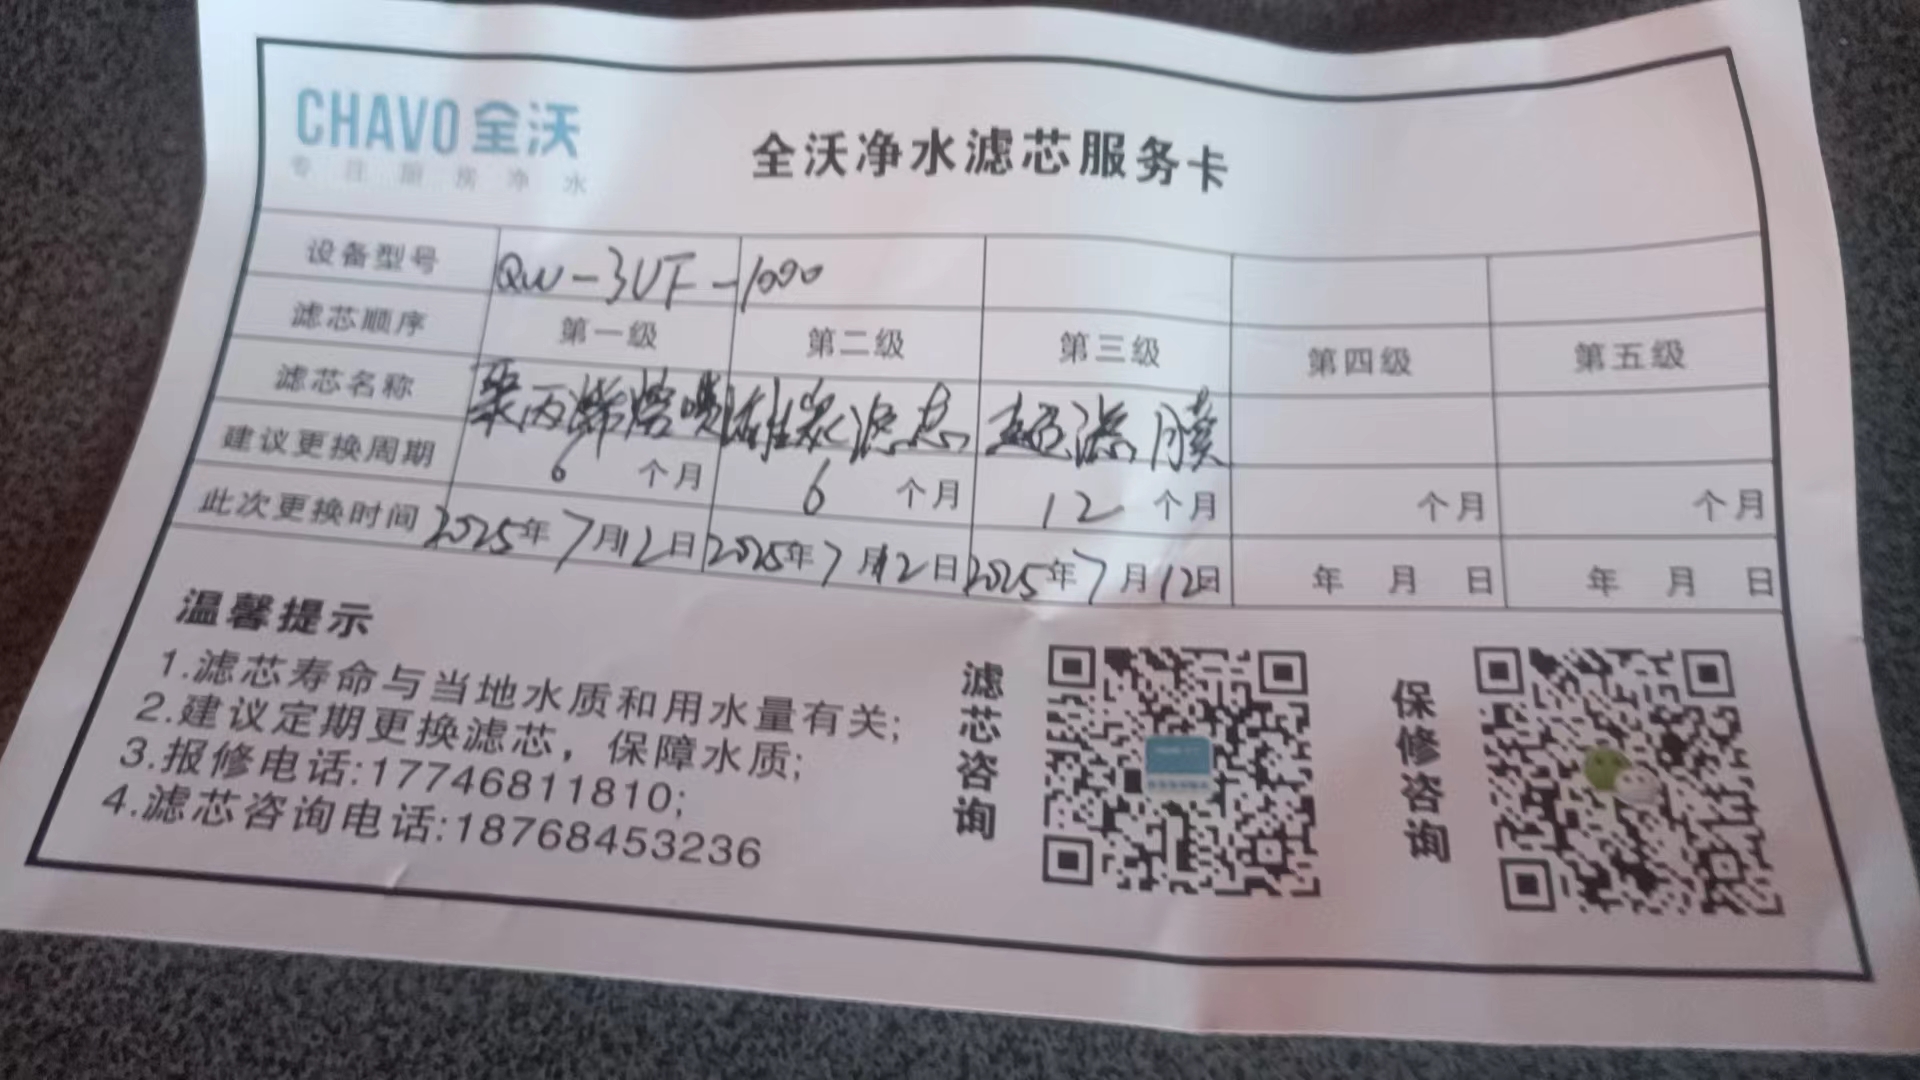 CHAVO 全沃
专注厨房净水
全沃净水滤芯服务卡
设备型号 QW-3UF-1000
滤芯顺序 第一级 第二级 第三级 第四级 第五级
滤芯名称 聚丙烯熔喷 椰炭滤芯 超滤膜
建议更换周期 6 个月 6 个月 12 个月 个月 个月
此次更换时间 2025年7月12日 2025年7月12日 2025年7月12日 年 月 日 年 月 日
温馨提示
1.滤芯寿命与当地水质和用水量有关;
2.建议定期更换滤芯，保障水质;
3.报修电话:17746811810;
4.滤芯咨询电话:18768453236
滤芯咨询
保修咨询